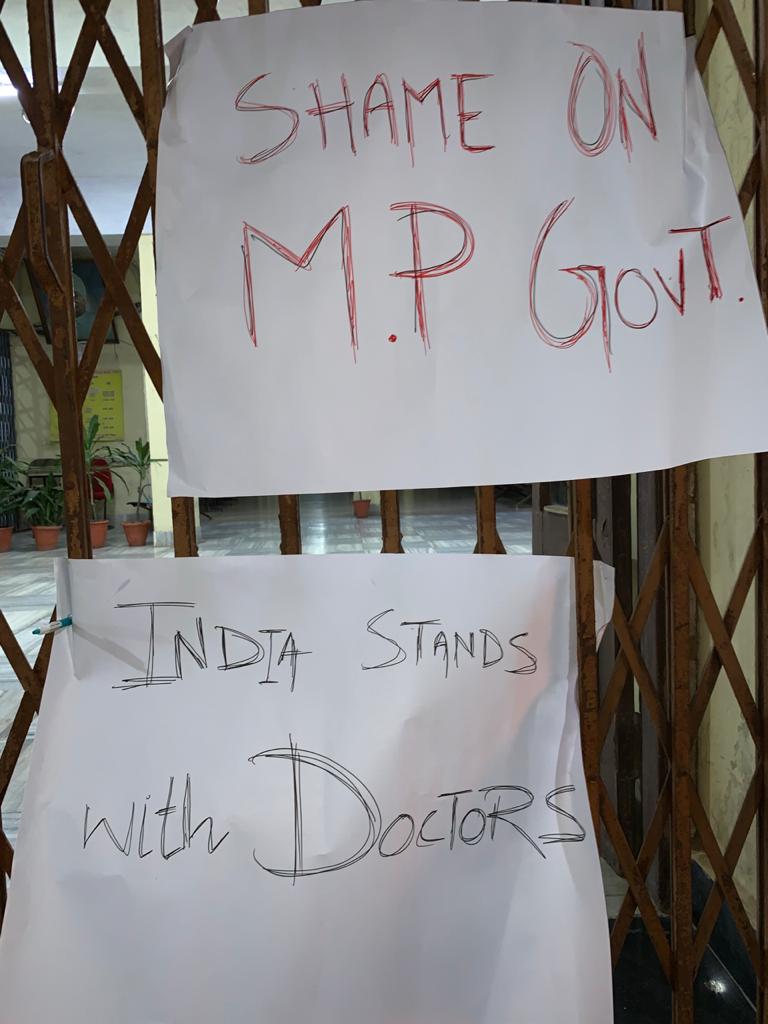 SHAME ON
M.P GOVT.
INDIA STANDS
with DOCTORS